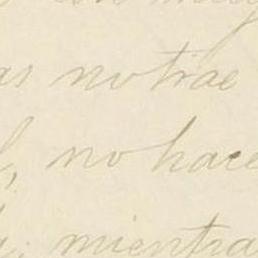 as no trae
, no hace
mientra